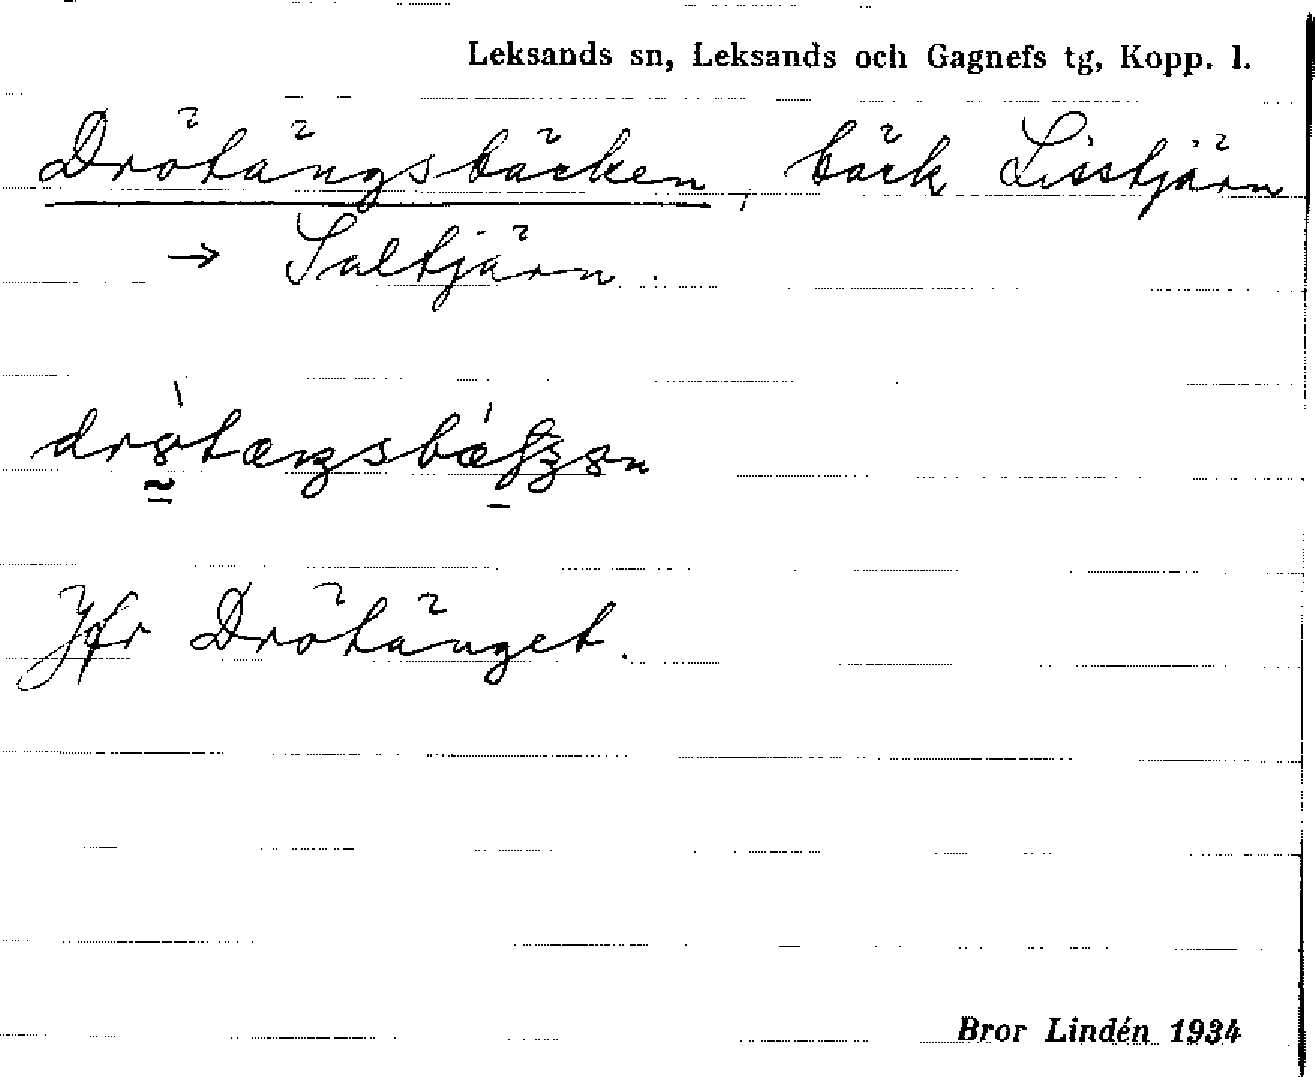 Leksands sn, Leksands och Gagnefs tg, Kopp. l.
Drötängsbäcken, bäck Lisstjärn
→ Saltjärn.
Jfr Drötänget.
Bror Lindén 1934